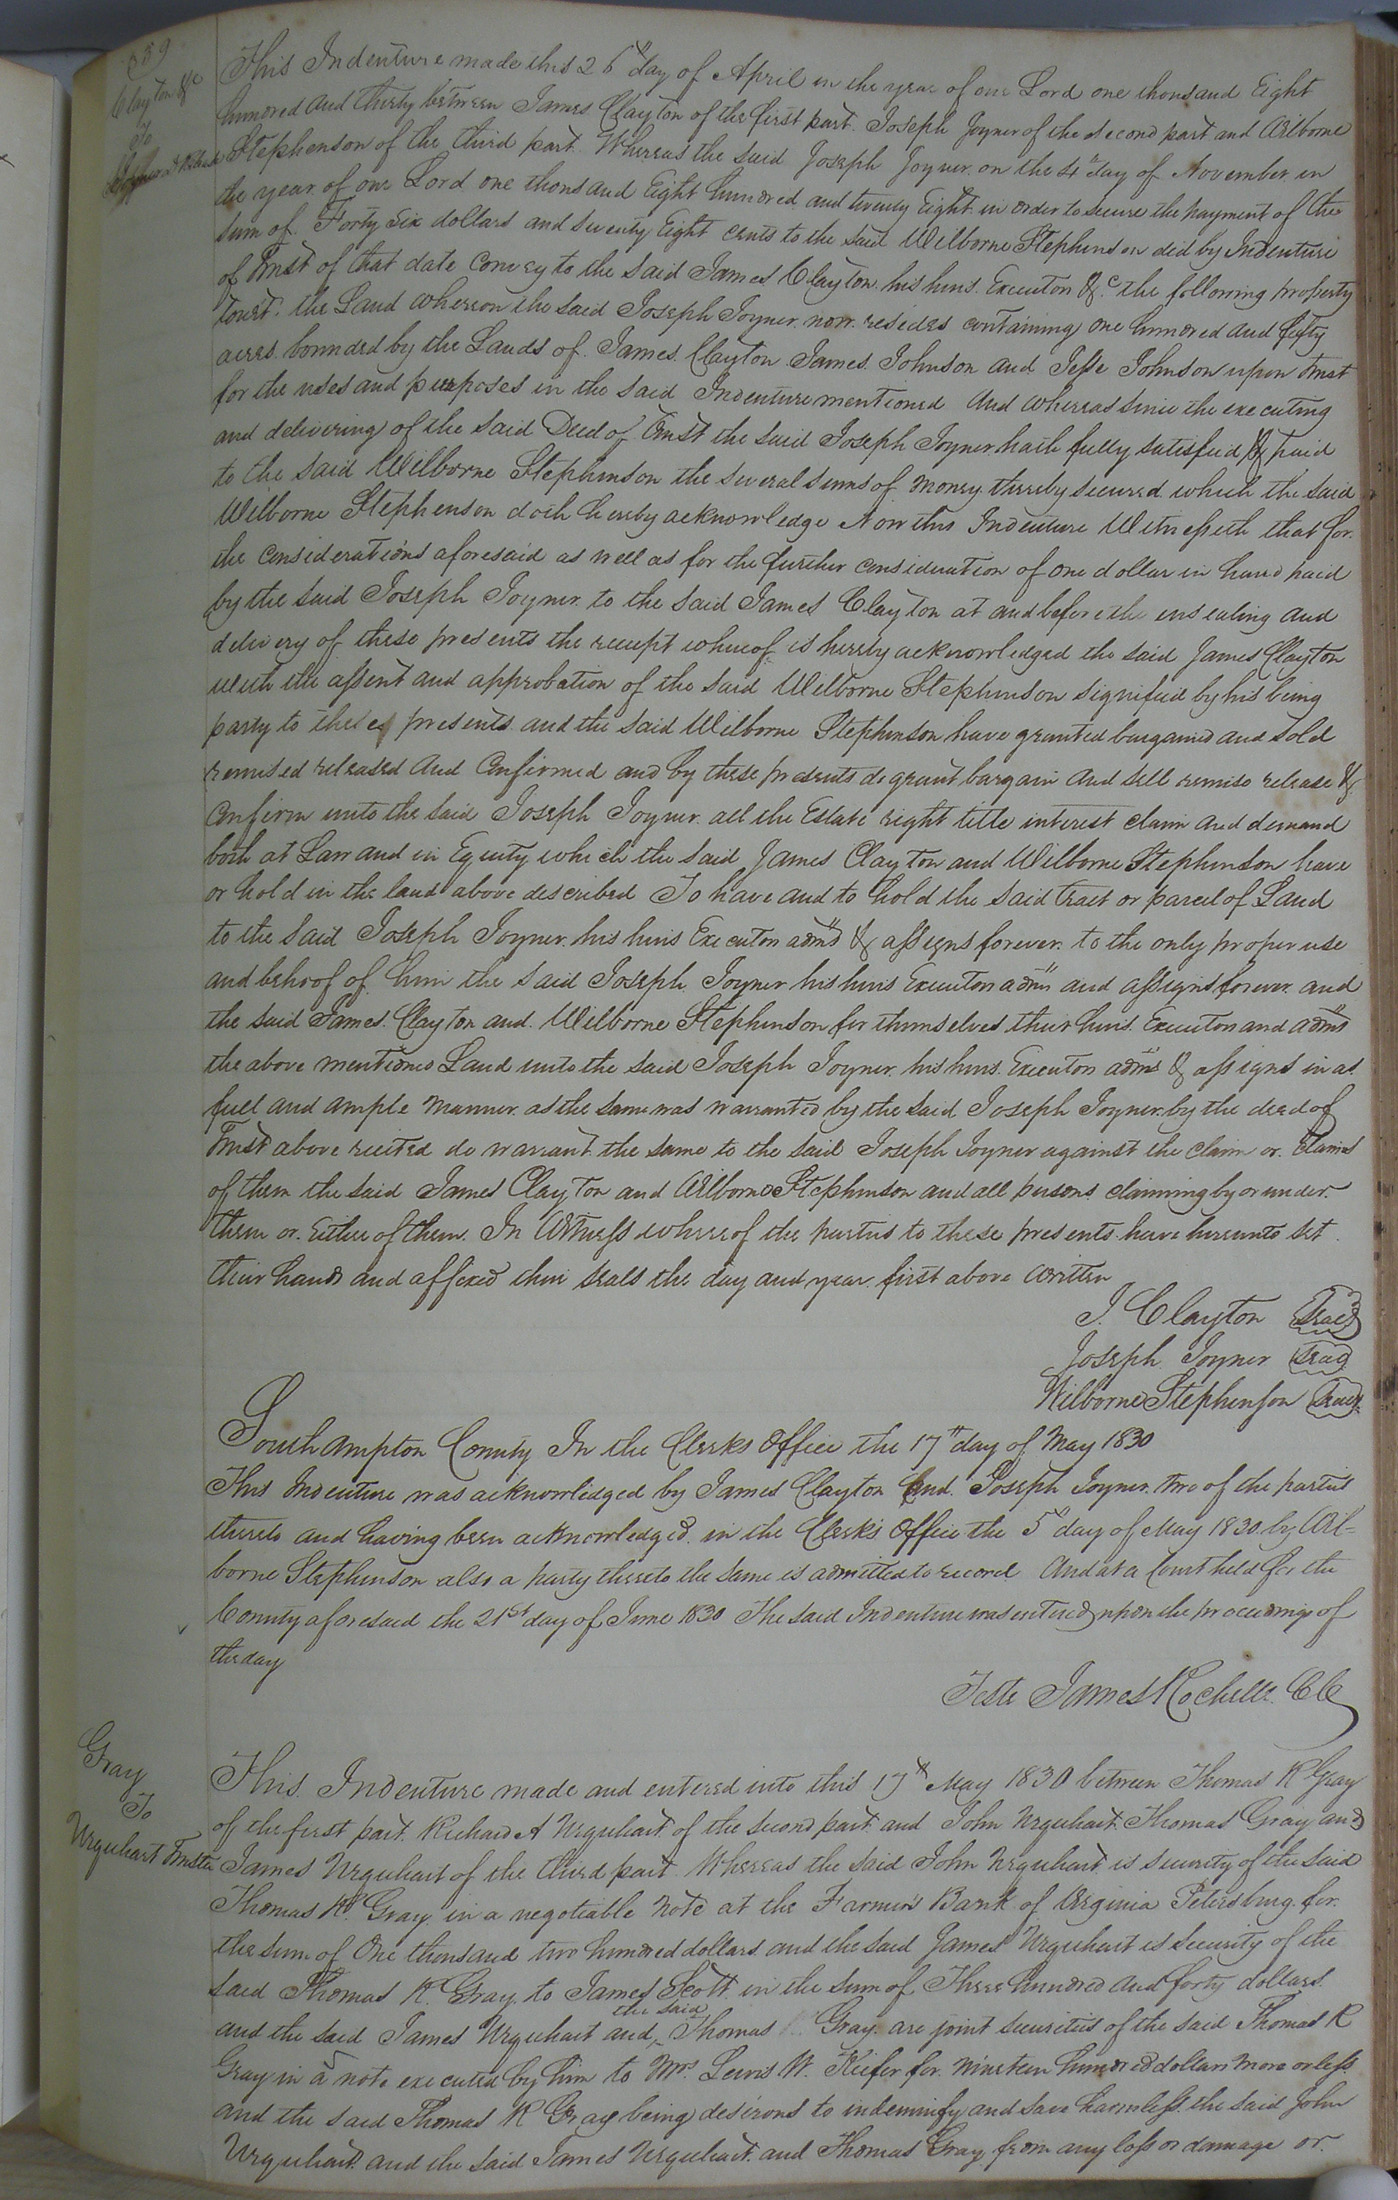 Clayton &c
To
This Indenture made this 26th day of April in the year of our Lord one thousand Eight
hundred and thirty between James Clayton of the first part. Joseph Joyner of the second part and Wilborne
Stephenson of the third part. Whereas the said Joseph Joyner on the 4th day of November in
the year of our Lord one thousand Eight hundred and twenty Eight in order to secure the payment of the
sum of Forty Six dollars and seventy Eight cents to the said Wilborne Stephenson did by Indenture
of Trust of that date Convey to the said James Clayton his heirs Executors &c the following property
towit. the Land whereon the said Joseph Joyner now resides containing one hundred and fifty
acres bounded by the Lands of James Clayton James Johnson and Jesse Johnson upon trust
for the uses and purposes in the said Indenture mentioned And whereas since the executing
and delivering of the said Deed of Trust the said Joseph Joyner hath fully satisfied & paid
to the said Wilborne Stephenson the several sums of money thereby secured which the said
Wilborne Stephenson doth hereby acknowledge Now this Indenture Witnesseth that for
the considerations aforesaid as well as for the further consideration of one dollar in hand paid
by the said Joseph Joyner to the said James Clayton at and before the ensealing and
delivery of these presents the receipt whereof is hereby acknowledged the said James Clayton
with the assent and approbation of the said Wilborne Stephenson signified by his being
party to these presents and the said Wilborne Stephenson have granted bargained and sold
remised released And Confirmed and by these presents do grant bargain And Sell remise release &
Confirm unto the said Joseph Joyner all the Estate right title interest claim and demand
both at Law and in Equity which the said James Clayton and Wilborne Stephenson have
or hold in the land above described To have and to hold the said tract or parcel of Land
to the said Joseph Joyner his heirs Executors admrs & assigns forever to the only proper use
and behoof of him the said Joseph Joyner his heirs Executors admrs and assigns forever and
the said James Clayton and Wilborne Stephenson for themselves their heirs Executors and admrs
the above mentioned Land unto the said Joseph Joyner his heirs Executors admrs & assigns in as
full and ample manner as the same was warranted by the said Joseph Joyner by the deed of
Trust above recited do warrant the same to the said Joseph Joyner against the claim or Claims
of them the said James Clayton and Wilborne Stephenson and all persons claiming by or under
them or Either of them. In Witness whereof the parties to these presents have hereunto set
their hands and affixed their seals the day and year first above Written
J. Clayton Seal
Joseph Joyner Seal
Wilborne Stephenson Seal
Southampton County In the Clerks Office the 17th day of May 1830
This Indenture was acknowledged by James Clayton And Joseph Joyner two of the parties
thereto and having been acknowledged in the Clerk's Office the 5th day of May 1830 by Wil-
borne Stephenson also a party thereto the same is admitted to record And at a Court held for the
County aforesaid the 21st day of June 1830 The said Indenture was entered upon the proceedings of
the day
Teste James Rochelle CC
Gray
To
Urquhart Trustee
This Indenture made and entered into this 17th May 1830 between Thomas R Gray
of the first part Richard A Urquhart of the second part and John Urquhart Thomas Gray and
James Urquhart of the third part. Whereas the said John Urquhart is security of the said
Thomas R. Gray in a negotiable note at the Farmers Bank of Virginia Petersburg for
the sum of One thousand two hundred dollars and the said James Urquhart is security of the
said Thomas R. Gray to James Scott in the sum of Three hundred and forty dollars
and the said James Urquhart and the said Thomas Gray are joint securities of the said Thomas R
Gray in a note executed by him to Mrs. Lewis W. Kiefer for Nineteen hundred dollars more or less
and the said Thomas R Gray being desirous to indemnify and save harmless the said John
Urquhart and the said James Urquhart and Thomas Gray from any loss or damage or